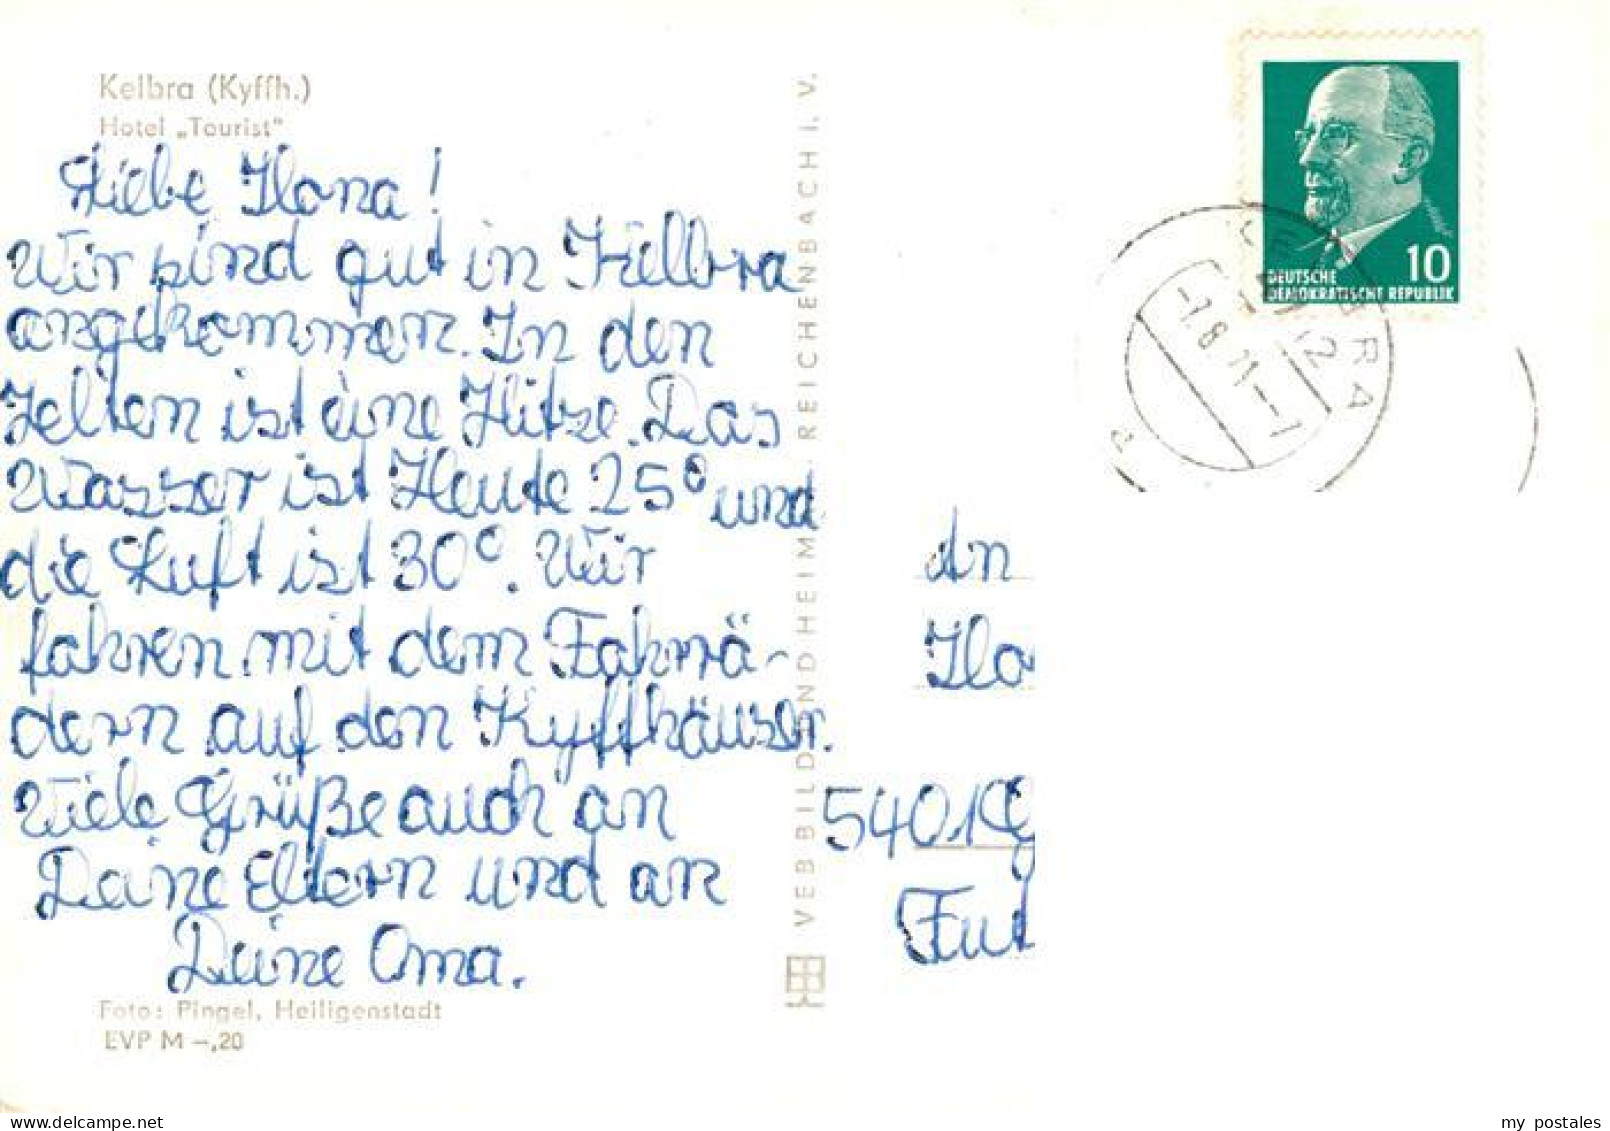 Kelbra (Kyffh.)
Hotel „Tourist"
Liebe Ilona!
Wir sind gut in Kelbra
angekommen. In den
Zelten ist eine Hitze. Das
Wasser ist Heute 25° und
die Luft ist 30°. Wir
fahren mit dem Fahrrä-
dern auf den Kyffhäuser.
Viele Grüße auch an
Deine Eltern und an
Deine Oma.
Foto: Pingel, Heiligenstadt
EVP M –,20
VEB BILD UND HEIMAT REICHENBACH I. V.
10
DEUTSCHE
DEMOKRATISCHE REPUBLIK
KELBRA
-7.8.71--7
An
Ilo
5401
delcampe.net
my_postales